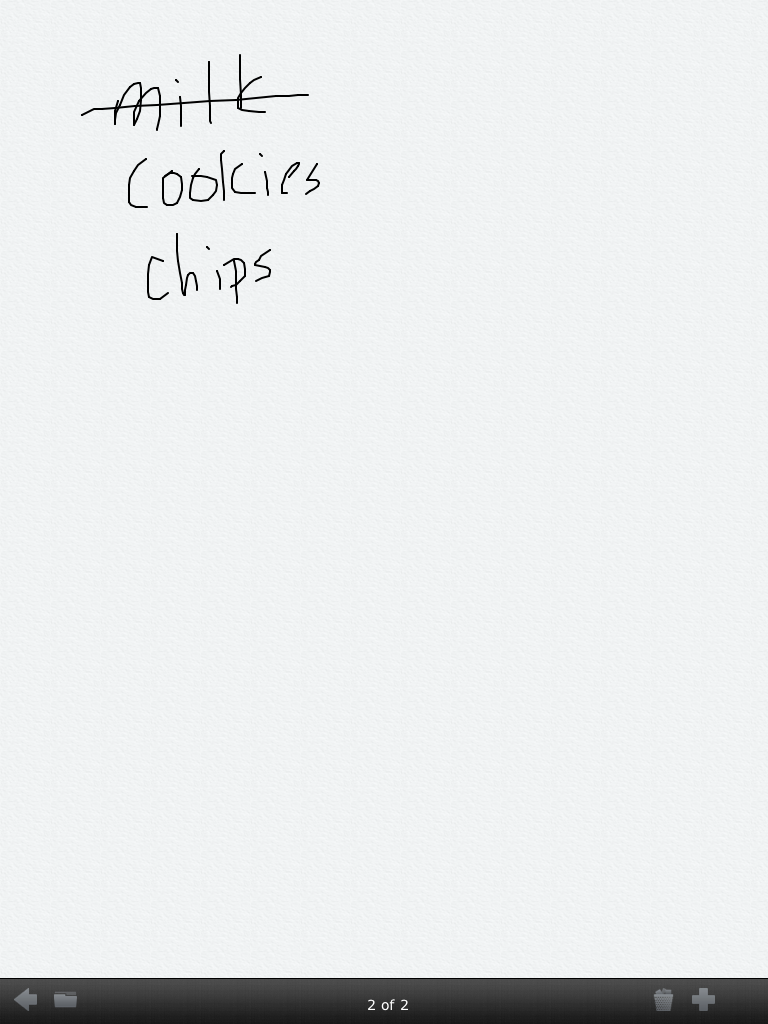 milk
cookies
chips
2 of 2